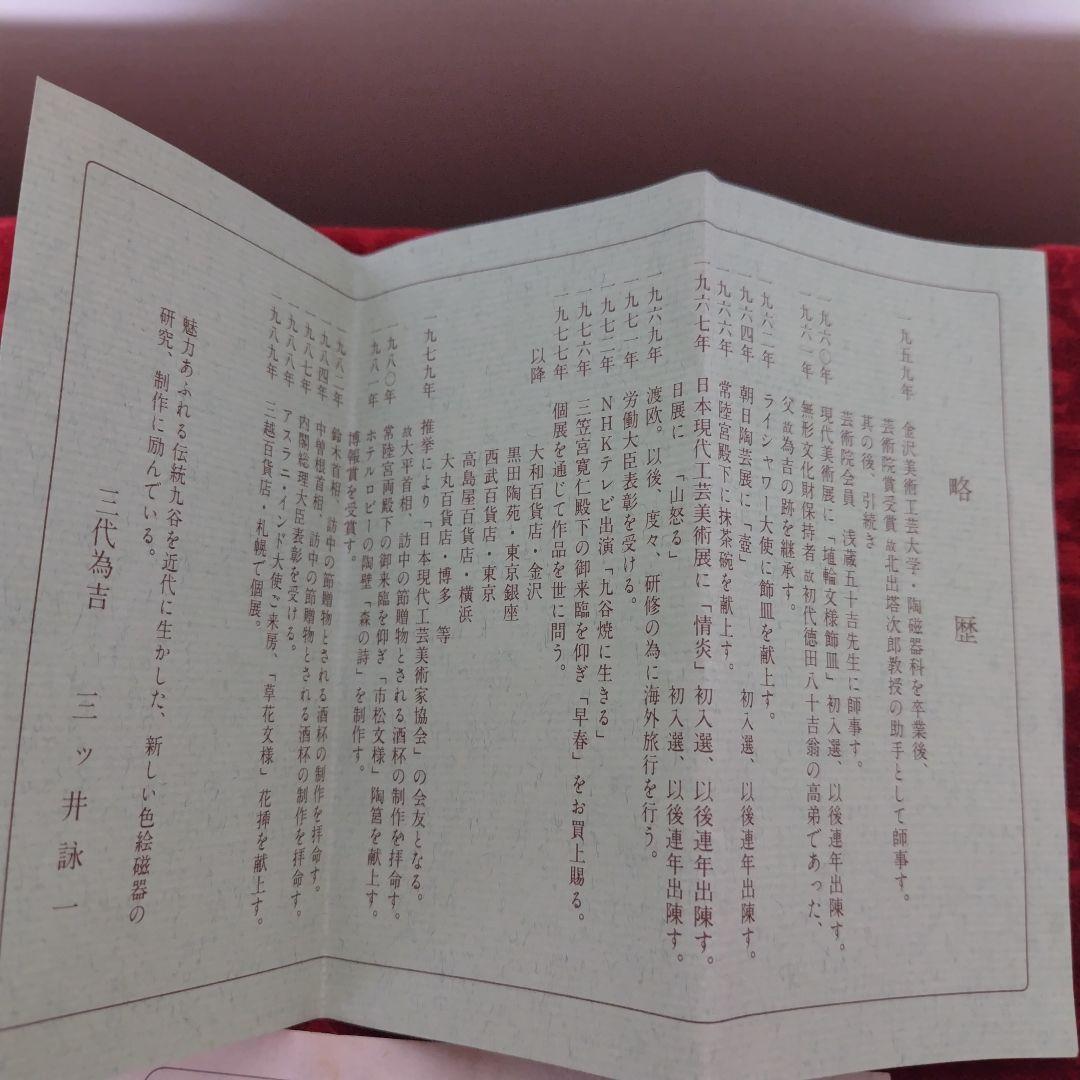 略歴
一九五九年 金沢美術工芸大学・陶磁器科を卒業後、
芸術院賞受賞 故北出塔次郎教授の助手として師事す。
其の後、引続き
芸術院会員 浅蔵五十吉先生に師事す。
一九六〇年 現代美術展に「埴輪文様飾皿」初入選、以後連年出陳す。
一九六一年 無形文化財保持者 故初代徳田八十吉翁の高弟であった、
父 故為吉の跡を継承す。
一九六二年 ライシャワー大使に飾皿を献上す。
一九六四年 朝日陶芸展に「壺」 初入選、以後連年出陳す。
一九六六年 常陸宮殿下に抹茶碗を献上す。
一九六七年 日本現代工芸美術展に「情炎」初入選、以後連年出陳す。
日展に 「山怒る」 初入選、以後連年出陳す。
一九六九年 渡欧。以後、度々、研修の為に海外旅行を行う。
一九七一年 労働大臣表彰を受ける。
一九七二年 NHKテレビ出演「九谷焼に生きる」
一九七六年 三笠宮寛仁殿下の御来臨を仰ぎ「早春」をお買上賜る。
一九七七年 個展を通じて作品を世に問う。
以降 大和百貨店・金沢
黒田陶苑・東京銀座
西武百貨店・東京
高島屋百貨店・横浜
大丸百貨店・博多 等
一九七九年 推挙により「日本現代工芸美術家協会」の会友となる。
故大平首相、訪中の節贈物とされる酒杯の制作を拝命す。
一九八〇年 常陸宮両殿下の御来臨を仰ぎ「市松文様」陶筥を献上す。
一九八一年 ホテルロビーの陶壁「森の詩」を制作す。
博報賞を受賞す。
一九八二年 鈴木首相、訪中の節贈物とされる酒杯の制作を拝命す。
一九八四年 中曽根首相、訪中の節贈物とされる酒杯の制作を拝命す。
一九八七年 内閣総理大臣表彰を受ける。
一九八八年 アスラニ・インド大使ご来房、「草花文様」花挿を献上す。
一九八九年 三越百貨店・札幌で個展。
魅力あふれる伝統九谷を近代に生かした、新しい色絵磁器の
研究、制作に励んでいる。
三代為吉 三ッ井詠一